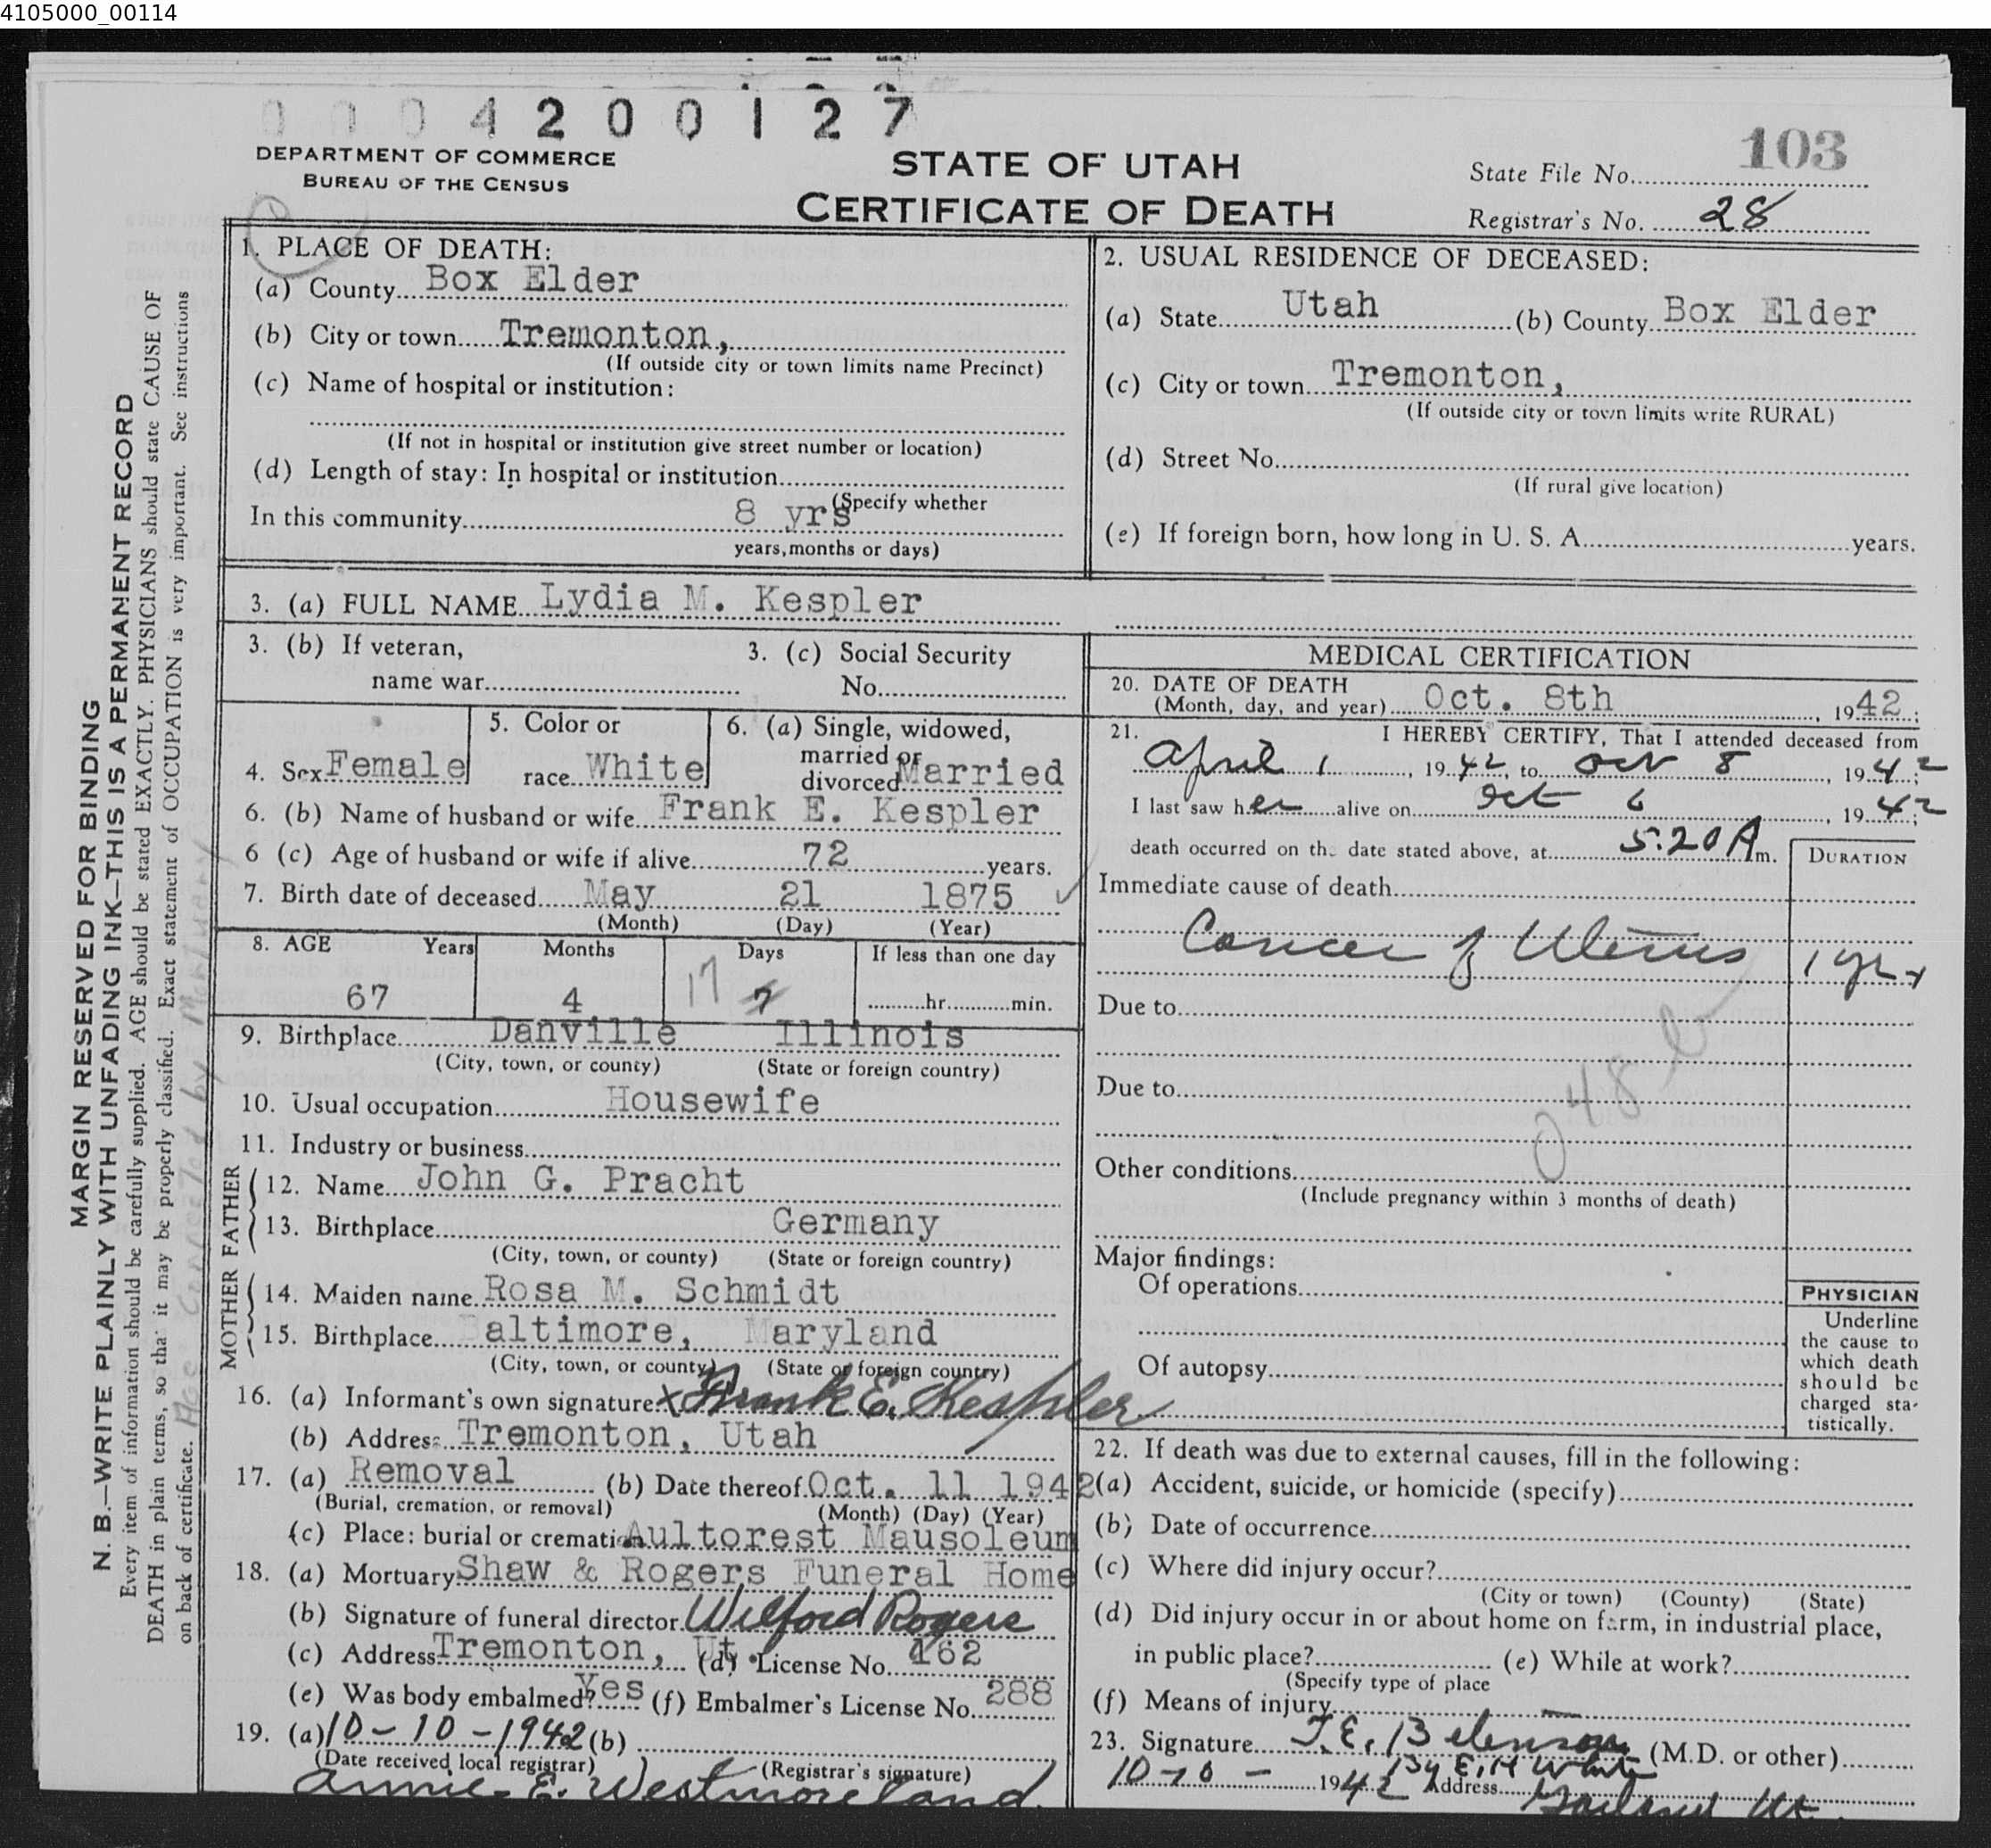 4105000_00114
0004200127
DEPARTMENT OF COMMERCE
BUREAU OF THE CENSUS
STATE OF UTAH
CERTIFICATE OF DEATH
103
State File No.
Registrar's No. 28
1. PLACE OF DEATH:
(a) County Box Elder
(b) City or town Tremonton,
(If outside city or town limits name Precinct)
(c) Name of hospital or institution:
(If not in hospital or institution give street number or location)
(d) Length of stay: In hospital or institution
(Specify whether
In this community 8 yrs
years, months or days)
2. USUAL RESIDENCE OF DECEASED:
(a) State Utah (b) County Box Elder
(c) City or town Tremonton,
(If outside city or town limits write RURAL)
(d) Street No.
(If rural give location)
(e) If foreign born, how long in U. S. A. years.
3. (a) FULL NAME Lydia M. Kespler
3. (b) If veteran,
name war
3. (c) Social Security
No.
4. Sex Female
5. Color or
race White
6. (a) Single, widowed,
married or
divorced Married
6. (b) Name of husband or wife Frank E. Kespler
6 (c) Age of husband or wife if alive 72 years.
7. Birth date of deceased May 21 1875
(Month) (Day) (Year)
8. AGE Years Months Days If less than one day
67 4 17 7 hr. min.
9. Birthplace Danville Illinois
(City, town, or county) (State or foreign country)
10. Usual occupation Housewife
11. Industry or business
FATHER
12. Name John G. Pracht
13. Birthplace Germany
(City, town, or county) (State or foreign country)
MOTHER
14. Maiden name Rosa M. Schmidt
15. Birthplace Baltimore, Maryland
(City, town, or county) (State or foreign country)
16. (a) Informant's own signature X Frank E. Kespler
(b) Address Tremonton, Utah
17. (a) Removal (b) Date thereof Oct. 11 1942
(Burial, cremation, or removal) (Month) (Day) (Year)
(c) Place: burial or cremation Aultorest Mausoleum
18. (a) Mortuary Shaw & Rogers Funeral Home
(b) Signature of funeral director Wilford Rogers
(c) Address Tremonton, Ut. (d) License No. 462
(e) Was body embalmed? Yes (f) Embalmer's License No. 288
19. (a) 10-10-1942 (b)
(Date received local registrar) (Registrar's signature)
Annie E. Westmoreland
MEDICAL CERTIFICATION
20. DATE OF DEATH
(Month, day, and year) Oct. 8th, 1942;
21. I HEREBY CERTIFY, That I attended deceased from
April 1, 1942, to Oct 8, 1942;
I last saw her alive on Oct 6, 1942;
death occurred on the date stated above, at 5:20 A m.
DURATION
Immediate cause of death
Cancer of Uterus 1 yr
Due to
Due to
048 b
Other conditions
(Include pregnancy within 3 months of death)
Major findings:
Of operations
Of autopsy
PHYSICIAN
Underline
the cause to
which death
should be
charged sta-
tistically.
22. If death was due to external causes, fill in the following:
(a) Accident, suicide, or homicide (specify)
(b) Date of occurrence
(c) Where did injury occur?
(City or town) (County) (State)
(d) Did injury occur in or about home on farm, in industrial place,
in public place? (e) While at work?
(Specify type of place
(f) Means of injury
23. Signature (M.D. or other)
By E. H White
1942 Address Garland Ut.
MARGIN RESERVED FOR BINDING
N. B.—WRITE PLAINLY WITH UNFADING INK—THIS IS A PERMANENT RECORD
Every item of information should be carefully supplied. AGE should be stated EXACTLY. PHYSICIANS should state CAUSE OF
DEATH in plain terms, so that it may be properly classified. Exact statement of OCCUPATION is very important. See instructions
on back of certificate. Age corrected by Mortuary